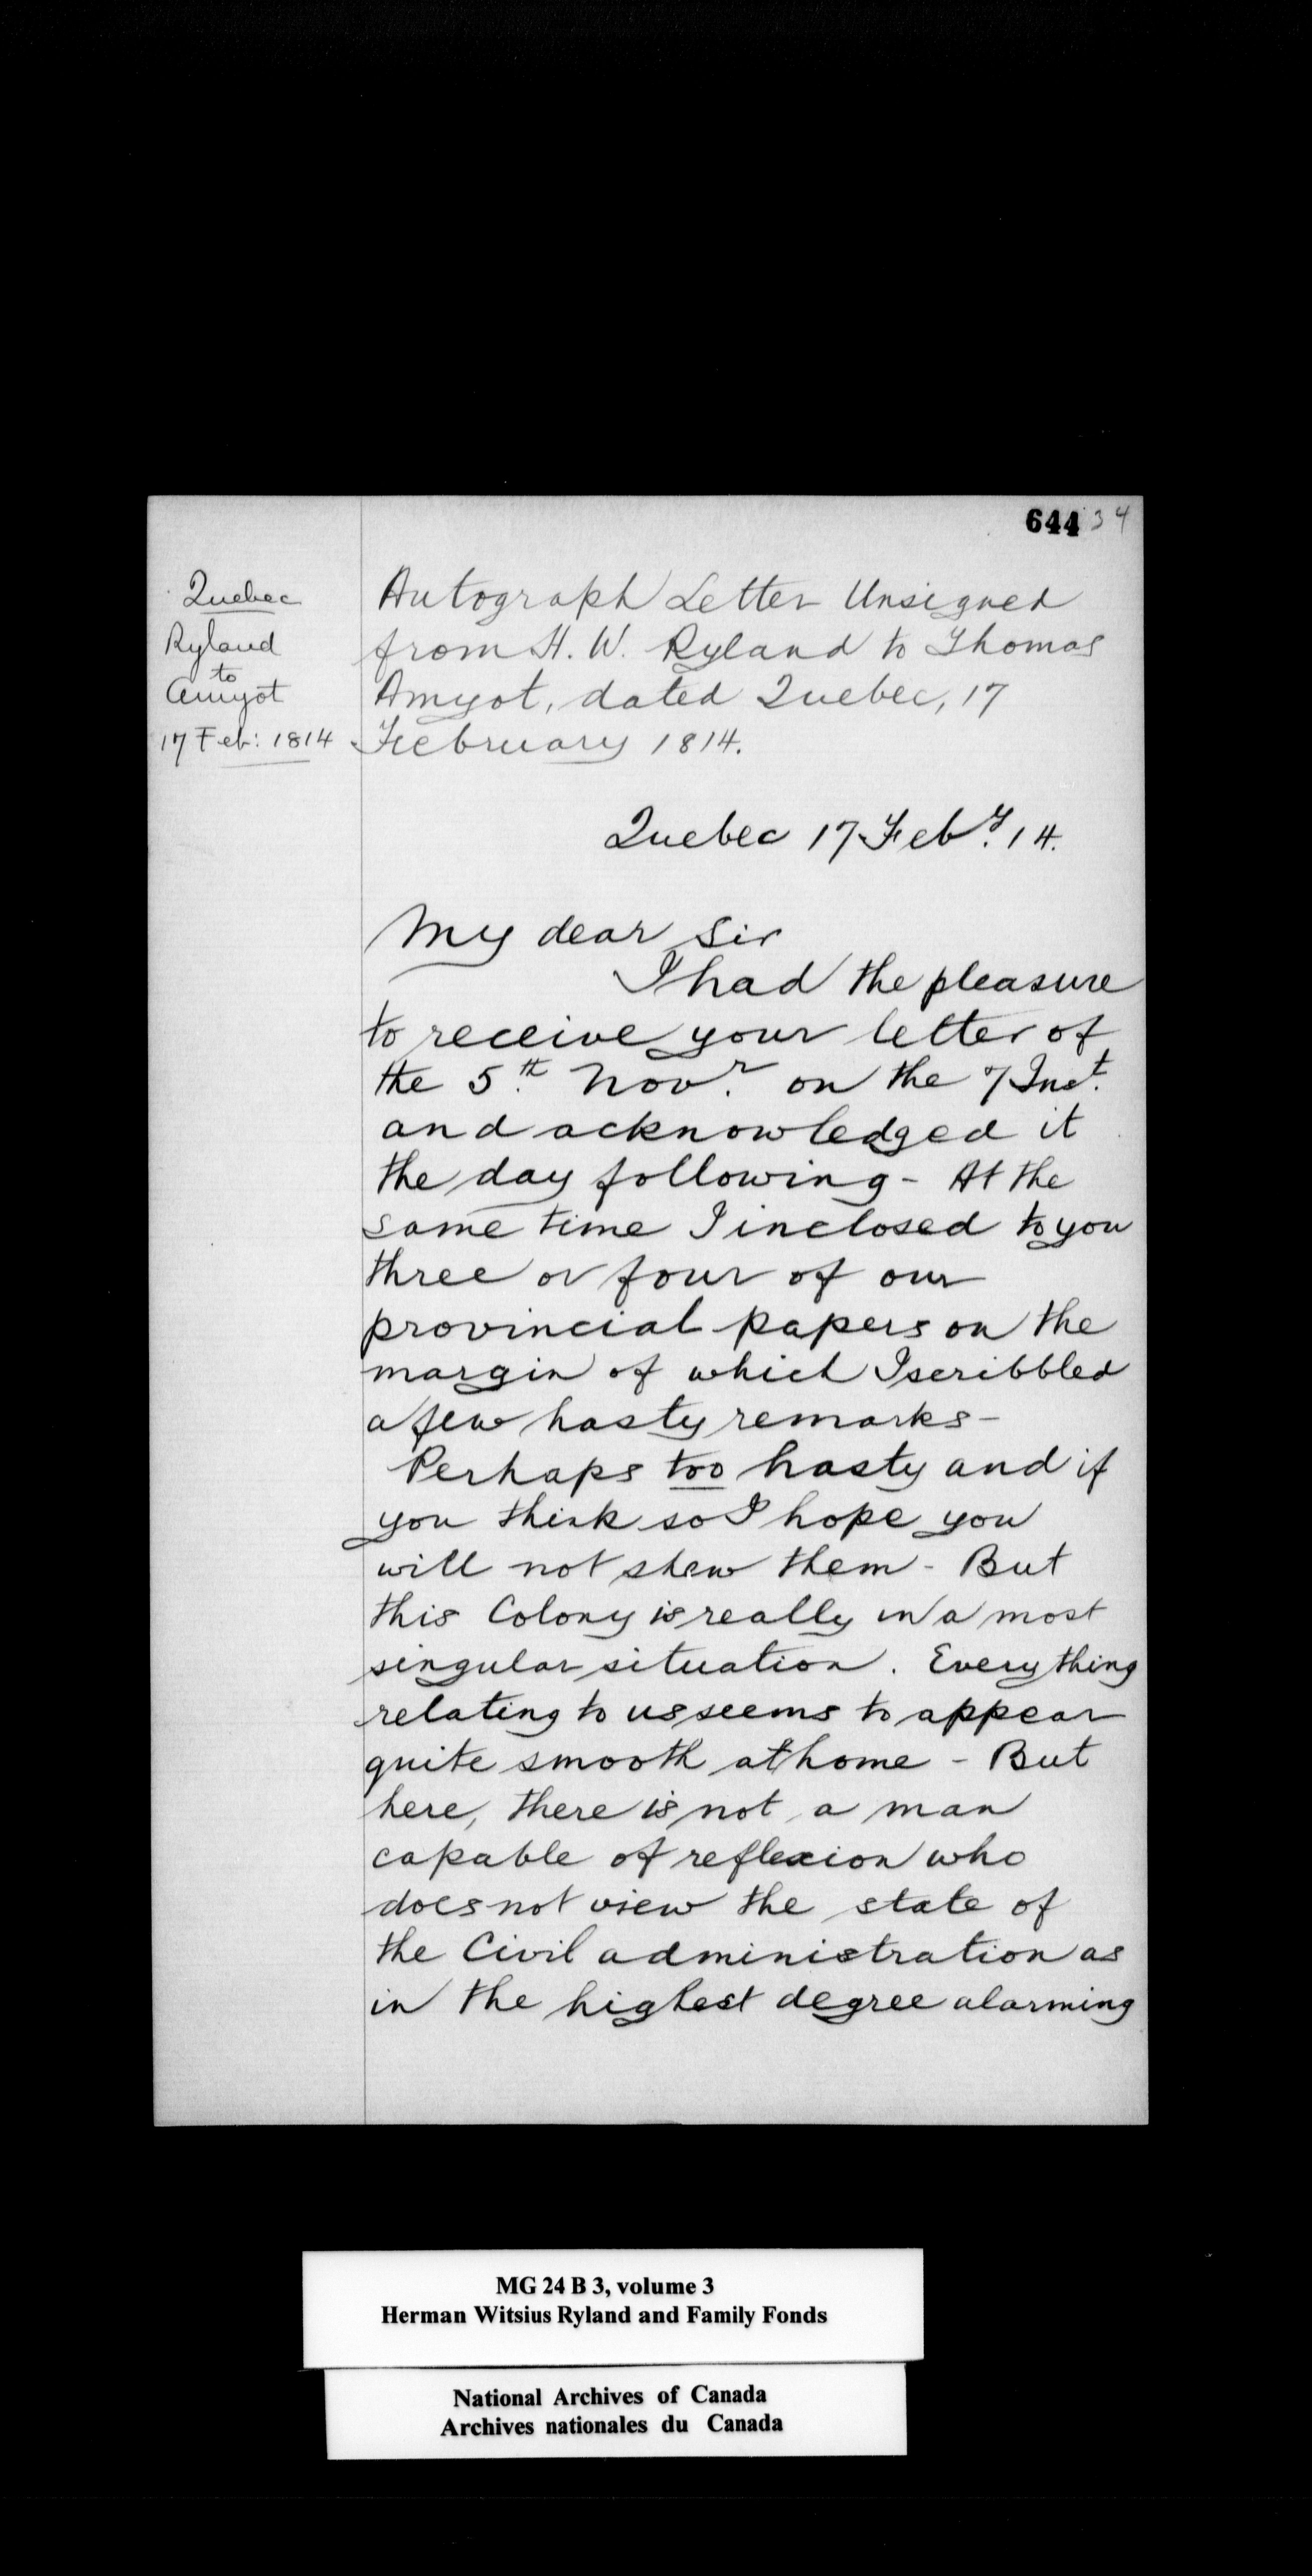 644 34
Quebec
Ryland
to
Amyot
17 Feb: 1814
Autograph Letter Unsigned
from H. W. Ryland to Thomas
Amyot, dated Quebec, 17
February 1814.
Quebec 17 Feby. 14.
My dear Sir
I had the pleasure
to receive your letter of
the 5.th Novr. on the 7 Inst.
and acknowledged it
the day following - At the
same time I inclosed to you
three or four of our
provincial papers on the
margin of which I scribbled
a few hasty remarks -
Perhaps too hasty and if
you think so I hope you
will not shew them - But
this Colony is really in a most
singular situation. Every thing
relating to us seems to appear
quite smooth at home - But
here, there is not a man
capable of reflexion who
does not view the state of
the Civil administration as
in the highest degree alarming
MG 24 B 3, volume 3
Herman Witsius Ryland and Family Fonds
National Archives of Canada
Archives nationales du Canada